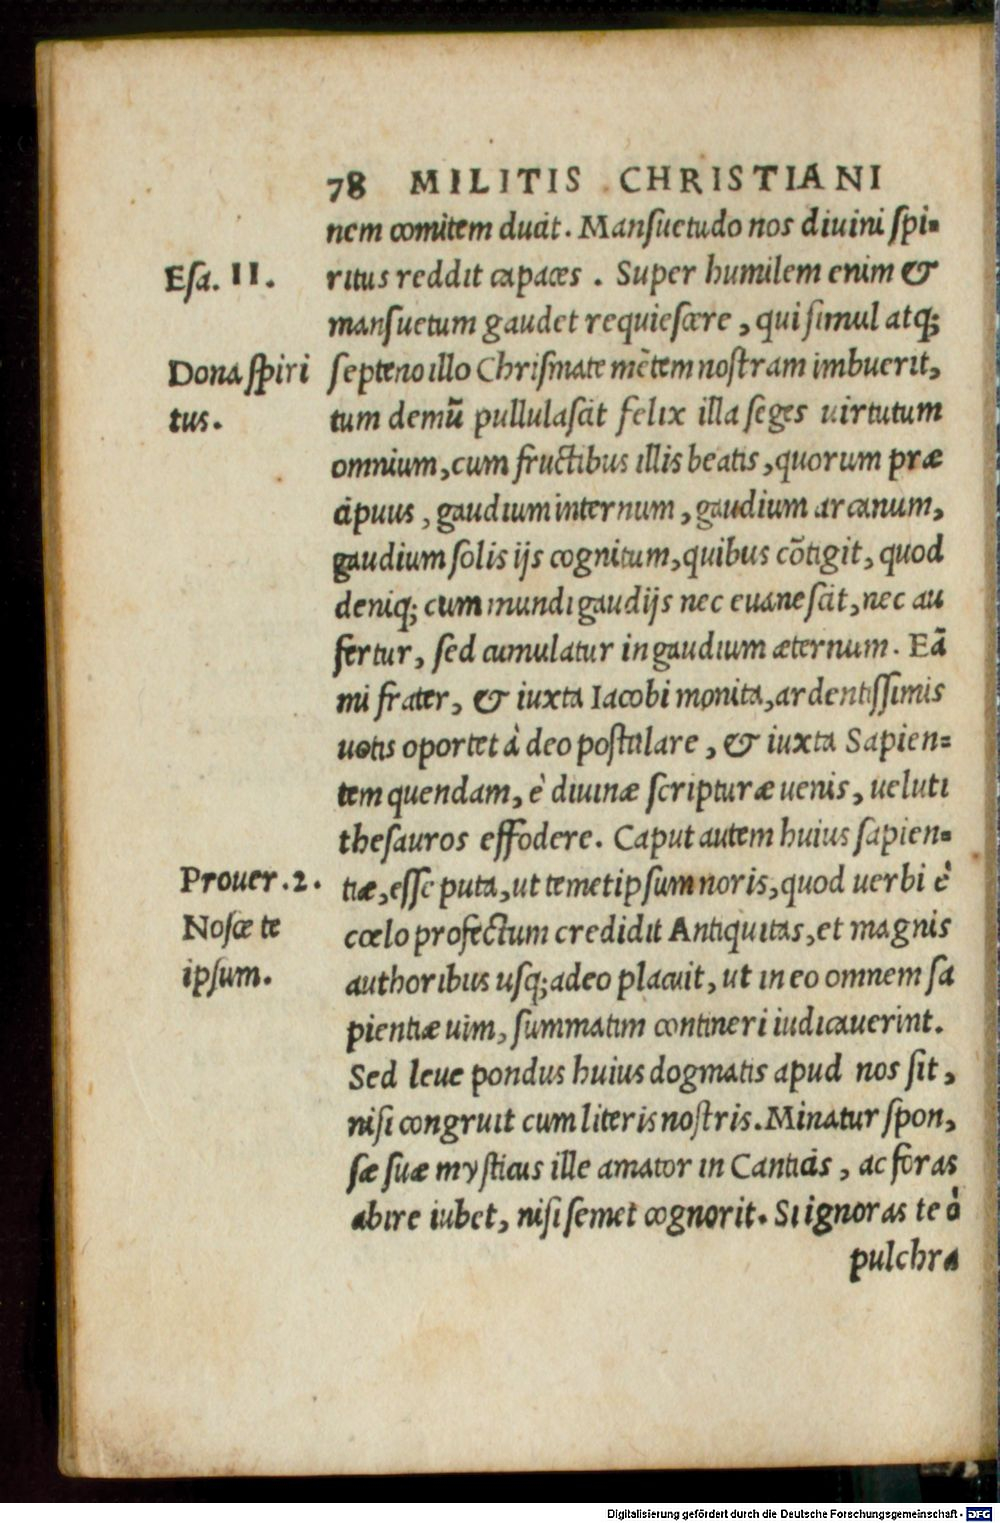 78 MILITIS CHRISTIANI
nem comitem ducit. Mansuetudo nos diuini spi=
Esa. II.
ritus reddit capaces. Super humilem enim &
mansuetum gaudet requiescere, qui simul atq;
Dona spiri
tus.
septeno illo Chrismate mẽtem nostram imbuerit,
tum demũ pullulascit felix illa seges uirtutum
omnium, cum fructibus illis beatis, quorum præ
cipuus, gaudium internum, gaudium arcanum,
gaudium solis ijs cognitum, quibus cõtigit, quod
deniq; cum mundi gaudijs nec euanescit, nec au
fertur, sed cumulatur in gaudium æternum. Eã
mi frater, & iuxta Iacobi monita, ardentissimis
uotis oportet à deo postulare, & iuxta Sapien=
tem quendam, è diuinæ scripturæ uenis, ueluti
thesauros effodere. Caput autem huius sapien=
Prouer. 2.
Nosce te
ipsum.
tiæ, esse puta, ut temetipsum noris, quod uerbi è
cœlo profectum credidit Antiquitas, et magnis
authoribus usq; adeo placuit, ut in eo omnem sa
pientiæ uim, summatim contineri iudicauerint.
Sed leue pondus huius dogmatis apud nos sit,
nisi congruit cum literis nostris. Minatur spon,
sæ suæ mysticus ille amator in Canticis, ac foras
abire iubet, nisi semet cognorit. Si ignoras te ò
pulchra
Digitalisierung gefördert durch die Deutsche Forschungsgemeinschaft - DFG